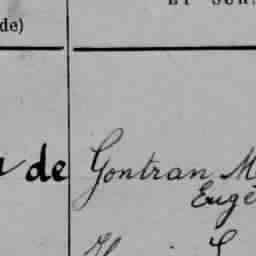 ET SUR
de)
de Gontran M
Eugè